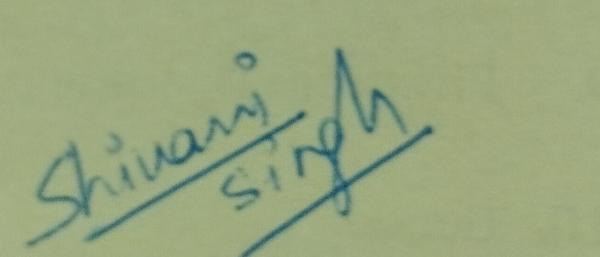 Shivani
Singh